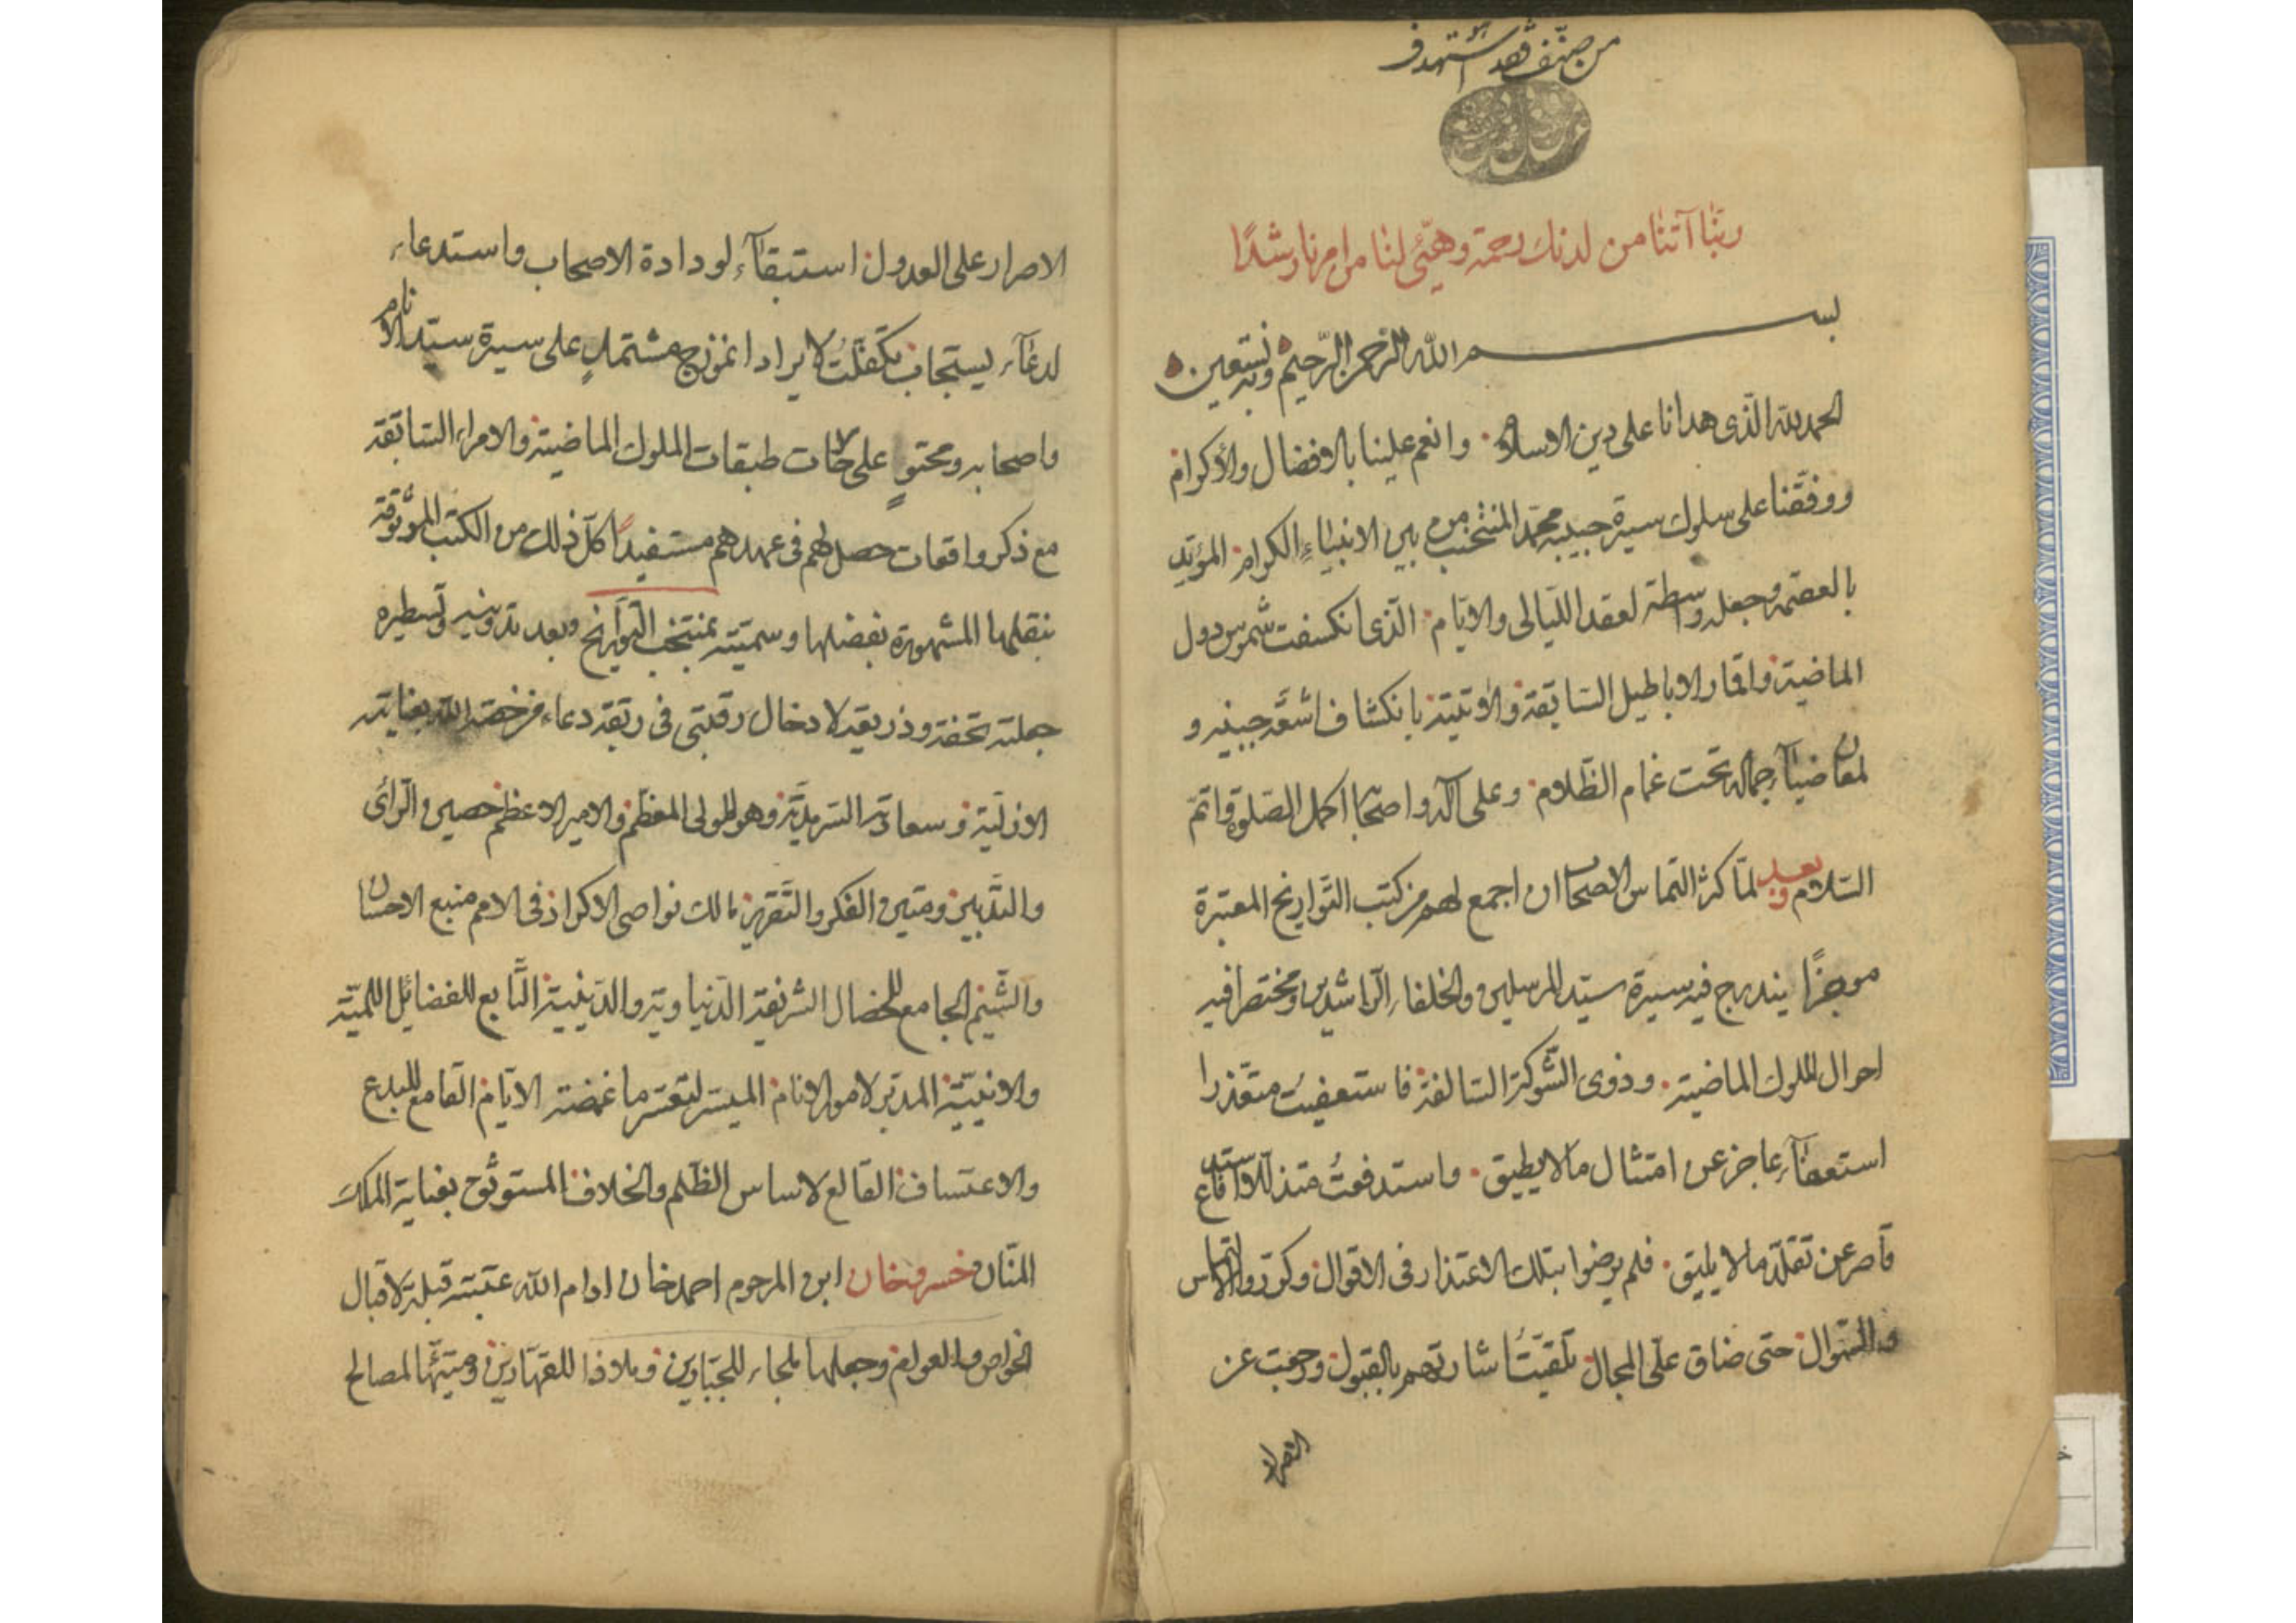 من صنّف فقد استهدف
ربّنا آتنا من لدنك رحمة وهيّئ لنا من امرنا رشدًا
بسم الله الرّحمن الرّحيم وبه نستعين
الحمد لله الّذى هدانا على دين الاسلام وانعم علينا بالافضال والأكرام
ووفّقنا على سلوك سيرة حبيبه محمّد المنتخب من بين الانبياءِ الكرام المؤيّد
بالعصمة وجعله واسطة لعقد اللّيالى والايّام الّذى انكسفت شموس دول
الماضية واقمار الاباطيل السّابقة والاتية بانكشاف اشعّة جبينه و
لمعان ضيآء جماله تحت غمام الظّلام وعلى آله واصحابه اكمل الصّلوة واتمّ
السّلام وبعد لمّا كثر التماس الاصحاب ان اجمع لهم من كتب التّواريخ المعتبرة
موجزًا يندرج فيه سيرة سيّد المرسلين والخلفاء الرّاشدين ومختصرا فيه
احوال الملوك الماضية وذوى الشّوكة السّالفة فاستعفيت متعّذرا
استعفآء عاجز عن امتثال ما لا يطيق واستدفعتُ متذللا استدفاع
قاصر عن تقلّد ما لا يليق فلم يرضوا بتلك الاعتذار فى الاقوال وكرّروا الالتماس
والسّوال حتى ضاق علىّ المجال تلقّيتُ اشارتهم بالقبول ورجعت عن
الاصرار
الاصرار على العدول استبقآءً لودادة الاصحاب واستدعاء
لدعآء يستجاب تكفّلتُ لايراد انموزج مشتملٍ على سيرة سيّد الانام
واصحابه ومحتوٍ على حالات طبقات الملوك الماضية والامراء السّابقة
مع ذكر واقعات حصل لهم فى عهدهم مستفيدًا كلّ ذلك من الكتب الموثوقة
بنقلها المشهورة بفضلها وسمّيته بمنتخب التّواريخ وبعد تدوينه وتسطيره
جعلته تحفة وذريعة لادخال رقبتى فى ربقة دعاء من خصّه الله بعنايته
الازليّة وسعادته السّرمديّة وهو المولى المعظّم والامير الاعظم حصين الرّائى
والتّدبير ومتين الفكر والتّقرير مالك نواصى الاكراد فى الامم منبع الاحسان
والشّيم الجامع للخصال الشّريفة الدّنياوية والدّينيية التّابع للفضائل اللميّة
والانيّيّة المدبّر لامور الانام الميسّر لتعسّر ما غمضته الايّام القامع للبدع
والاعتساف القالع لاساس الظّلم والخلاف المستوثق بعناية الملك
المنّان خسروخان ابن المرحوم احمد خان ادام الله عتبته قبلة لاقبال
الخواص والعوام وجعلها ملجاء للجبّارين وملاذا للقهّارين وهيّئها لمصالح